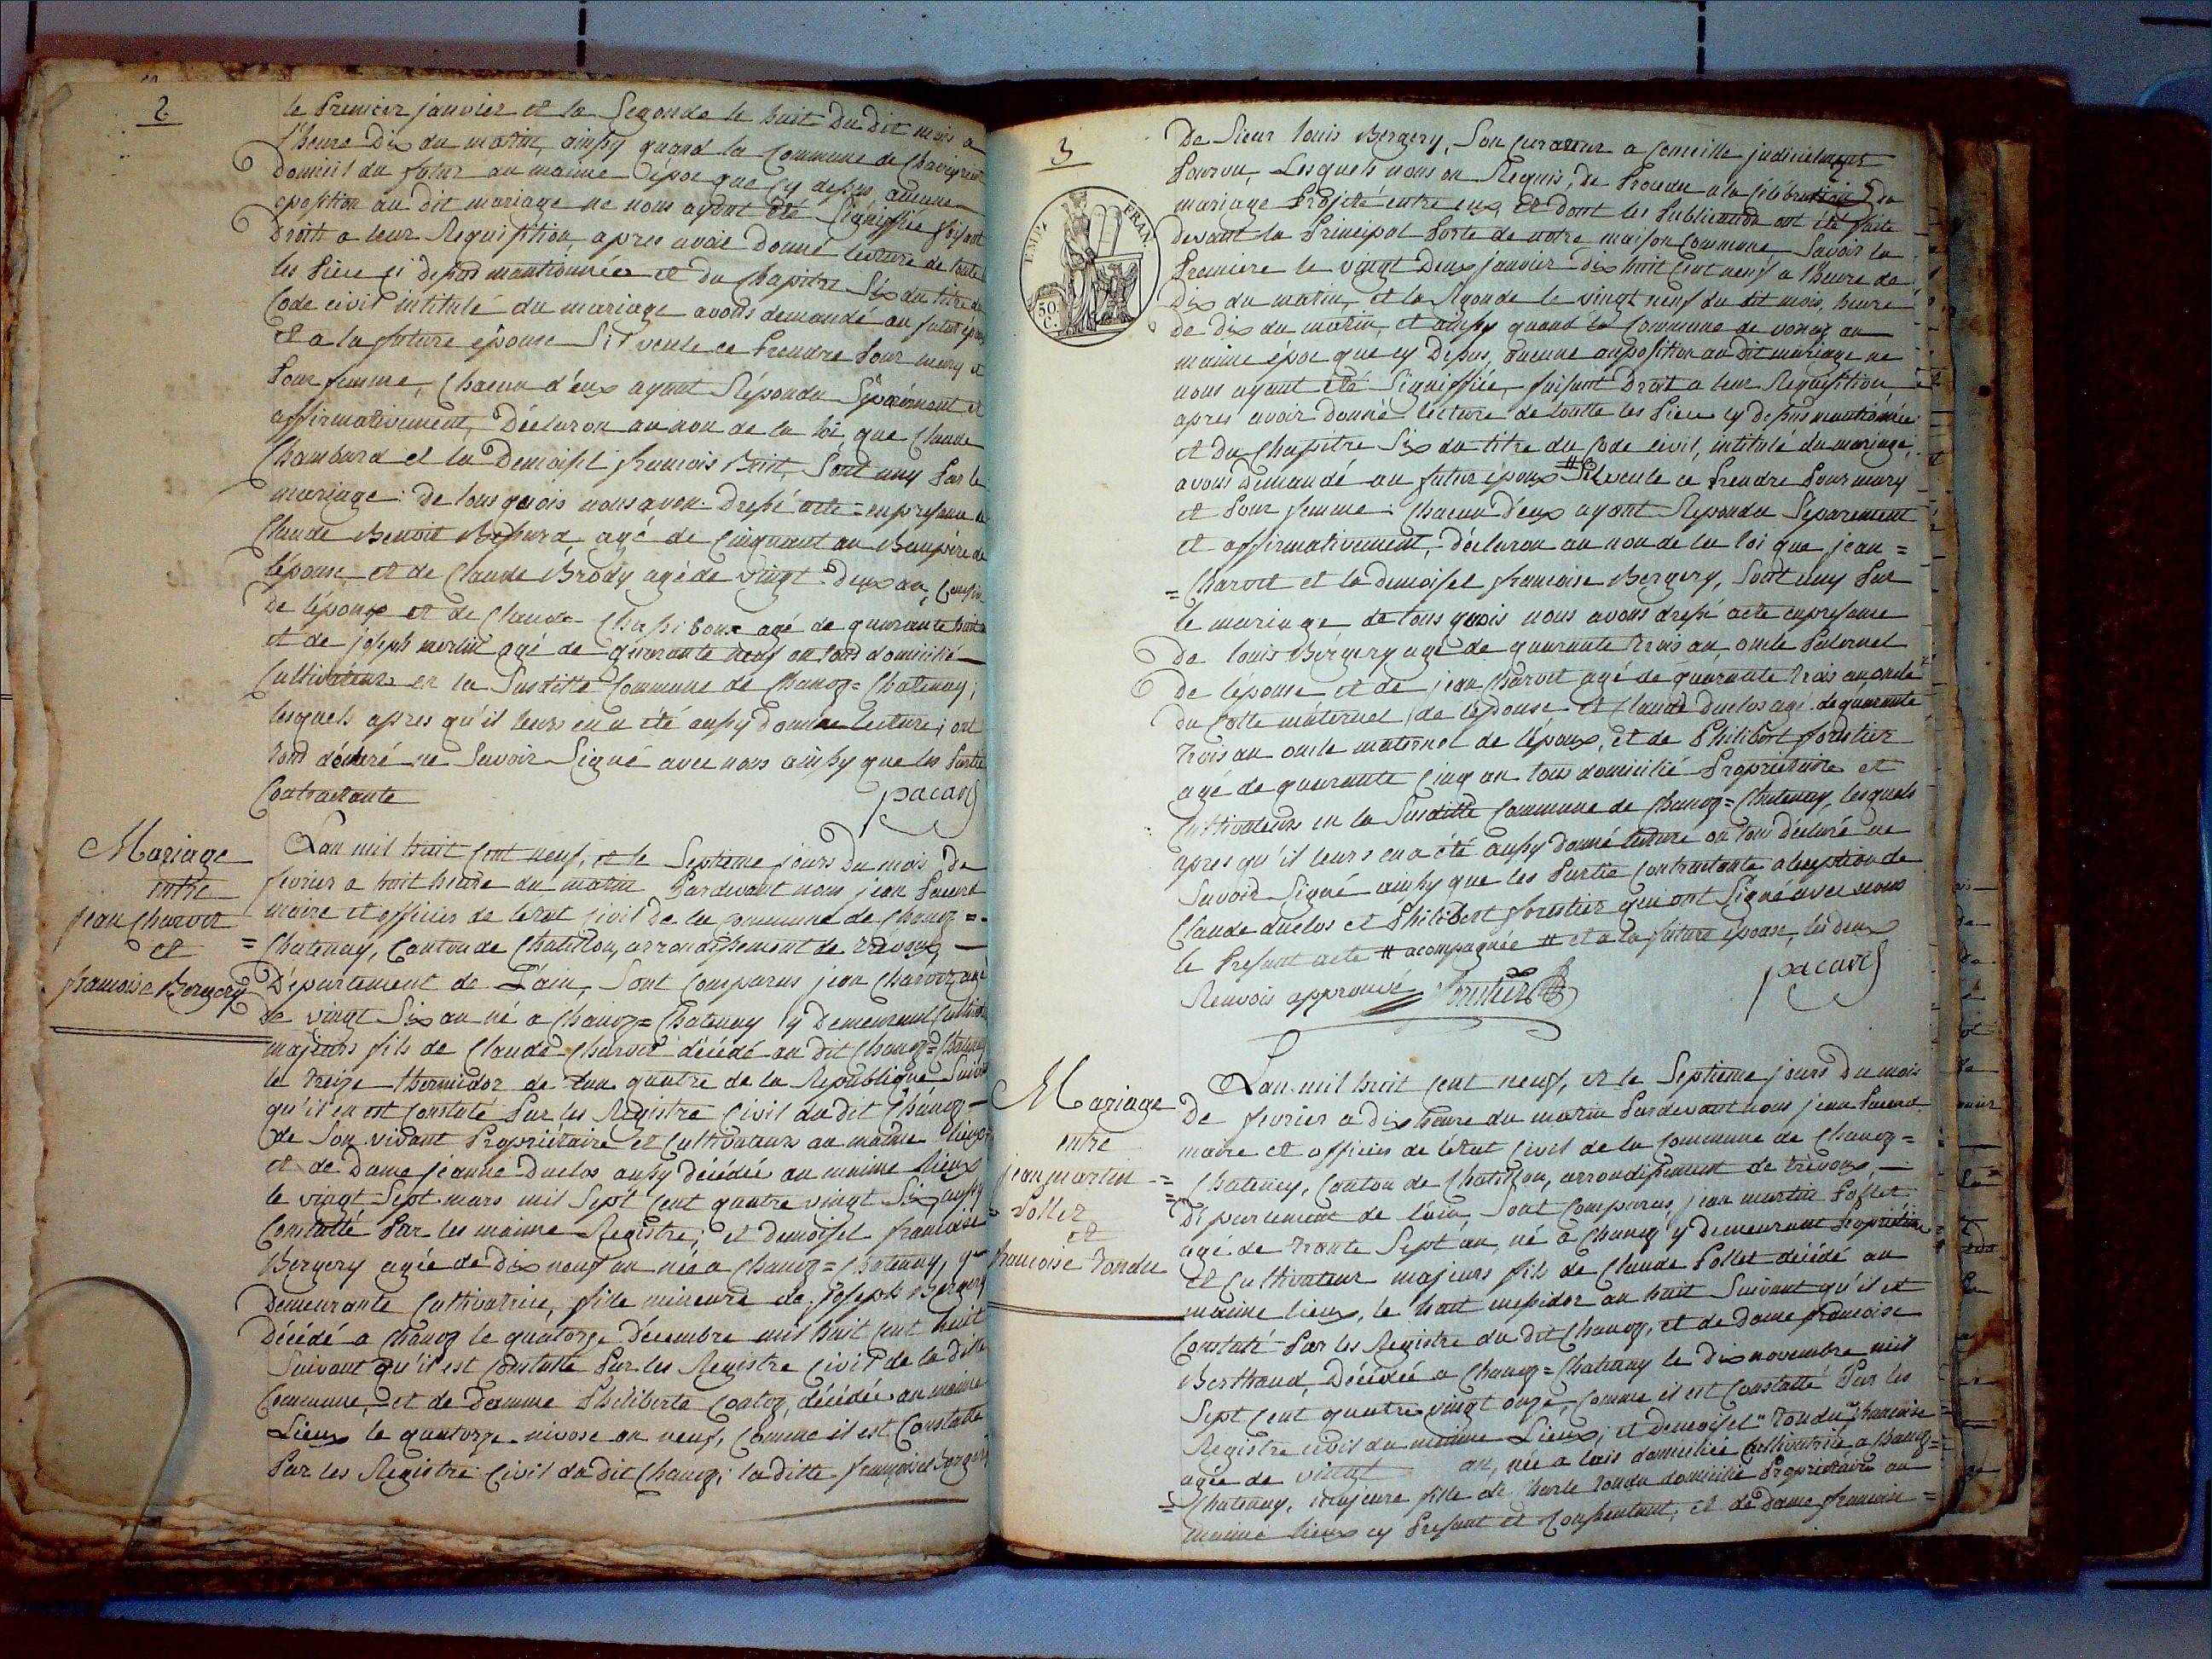 2
le Premier janvier et la Segonde le huit Du dit mois a
l'heure Dix du matin, ainsy quand la Commune de
Domicil du futur au maime époc que cy desus aucune
oposition au dit mariage ne nous ayant été Signiffiée faisant
Droits a leur Requisition, apres avoir Donné lecture de toute
les Piece ci desus mantionnées et du Chapitre Six du titre du
Code civil intitulé du mariage avons demandé au futur époux
et a la future épouse S'il veule ce Prendre Pour mary et
Pour femme, Chacun d'eux ayant Répondu Séparément et
affirmativement, Déclaron au non de la loi, que Claude
Chambard et la Demoisel francois Sont uny Par le
mariage: de tous quois nous avon Dressé acte en presance de
Claude Benoit agé de Cinquant an Beaupère de
l'épouse, et de Claude Brody agé de vingt Deux an, Cousin
De l'époux et de Claude agé de quarante huit
et de joseph merlin agé de quarante neuf an tous domicilié
Cultivateurs en la Susditte Commune de Chanoz=Chatenay;
lesquels apres qu'il leurs en a été aussy donnée lecture; ont
tous déclaré ne Savoir Signé avec nous ainsy que les Partie
Contractante pacard
Mariage
entre
jean Charvet
et
francoise Bergery
Lan mil huit Cent neuf, et le Septieme jours Du mois De
fevrier a huit heure du matin Pardevant nous jean Pacard
maire et officier de letat Civil De la Commune de Chanoz=
=Chatenay, Canton de Chatillon, arrondissement de trevoux,
Département de L'ain, Sont Comparus jean Charvet agé
de vingt Six an né a Chanoz=Chatenay y Demeurant
majeurs fils de Claude Charvet décédé au dit Chanoz=Chatenay
le treize thermidor de Lan quatre de la Republique Suivant
qu'il en est Constaté Par les Registre Civil du dit Chanoz
de Son vivant Propriétaire et Cultivateurs au maime lieux
et de Dame jeanne Duclos aussy Décédée au maime lieux
le vingt Sept mars mil Sept Cent quatre vingt Six aussy
Constatté Par les maime Registre; et demoisel francoise
Bergery agée de Dix neuf an née a Chanoz=Chatenay, y
Demeurante Cultivatrice, fille mineure de joseph Bergery
Décédé a Chanoz le quatorze Décembre mil huit Cent huit
Suivant qu'il est Constatté Par les Registre Civil de la ditte
Commune, et de Damme Philiberte décédée au maime
Lieux le quatorze nivose an neuf, Comme il est Constatté
Par les Registre Civil du dit Chanoz; laditte francoise Bergery
3
EMP. FRAN.
50 C.
De Sieur louis Bergery, Son Curateur a Conseille judicielment
Pourvu, Lesquels nous on Requis, de Proceder a la Célébration du
mariage Projeté entre eux, et dont les Publication ont été faite
devant la Principal Porte de notre maison Commune, Savoir la
Premiere le vingt Deux janvier Dix huit Cent neuf a l'heure de
Dix du matin, et la Segonde le vingt neuf du dit mois, heure
de dix du matin, et ainsy quand la Commune de au
maime époc que cy Desus, aucune oposition au dit mariage ne
nous ayant été Signiffiée, faisant Droit a leur Requisition
apres avoir donné lecture de toutte les Piece cy desus mantionnée
et du Chapitre Six du titre du Code Civil, intitulé du mariage,
avons Demandé au futur époux # S'il veule ce Prendre Pour mary
et Pour femme: Chacun D'eux ayant Repondu Séparement
et affirmativement, déclaron au non de la loi que jean=
=Charvet et la Demoisel francoise Bergery, Sont uny Par
le mariage de tous quois nous avons dressé acte en presance
De louis Bergery agé de quarante trois an, oncle Paternel
De l'épouse et de jean Charvet agé de quarante trois an oncle
du Cotte maternel de l'épouse et Claude Duclos agé de quarante
trois an oncle maternel de l'époux, et de Philibert forestier
agé de quarante Cinq an tous domicilié Propriétaire et
Cultivateurs en la Susditte Commune de Chanoz=Chatenay, lesquels
apres qu'il leurs en a été aussy donné lecture on tous déclaré ne
Savoir Signé ainsy que les Partie Contractante a l'exeption de
Claude duclos et Philibert forestier qui ont Signé avec nous
le Presant acte # acompagnée # et a la future épouse, les deux
Renvois approuvé forestier pacard
Mariage
entre
jean martin
Pollet
et
francoise tondu
Lan mil huit Cent neuf, et le Septieme jours Du mois
De fevrier a dix heure du matin Pardevant nous jean Pacard
maire et officier de létat Civil de la Commune de Chanoz=
=Chatenay, Canton de Chatillon, arrondissement de trévoux,
Département de l'ain, Sont Comparus, jean martin Pollet
agé de trante Sept an, né a Chanoz y demeurant Propriétaire
et Cultivateur majeurs fils de Claude Pollet décédé au
maime lieux, le huit messidor an huit Suivant qu'il est
Constaté Par les Registre du dit Chanoz, et de Dame francoise
Berthaud, Décédée a Chanoz=Chatenay le dix novembre mil
Sept Cent quatre vingt onze, Comme il est Constatté Par les
Registre civil du maime Lieux; et demoisel tondu francoise
agée de vingt an, née a lais domiciliée Cultivatrice a Chanoz=
=Chatenay, majeure fille de tondu domicilié Propriétaire au
maime lieux cy Présant et Consentant, et de Dame francoise=